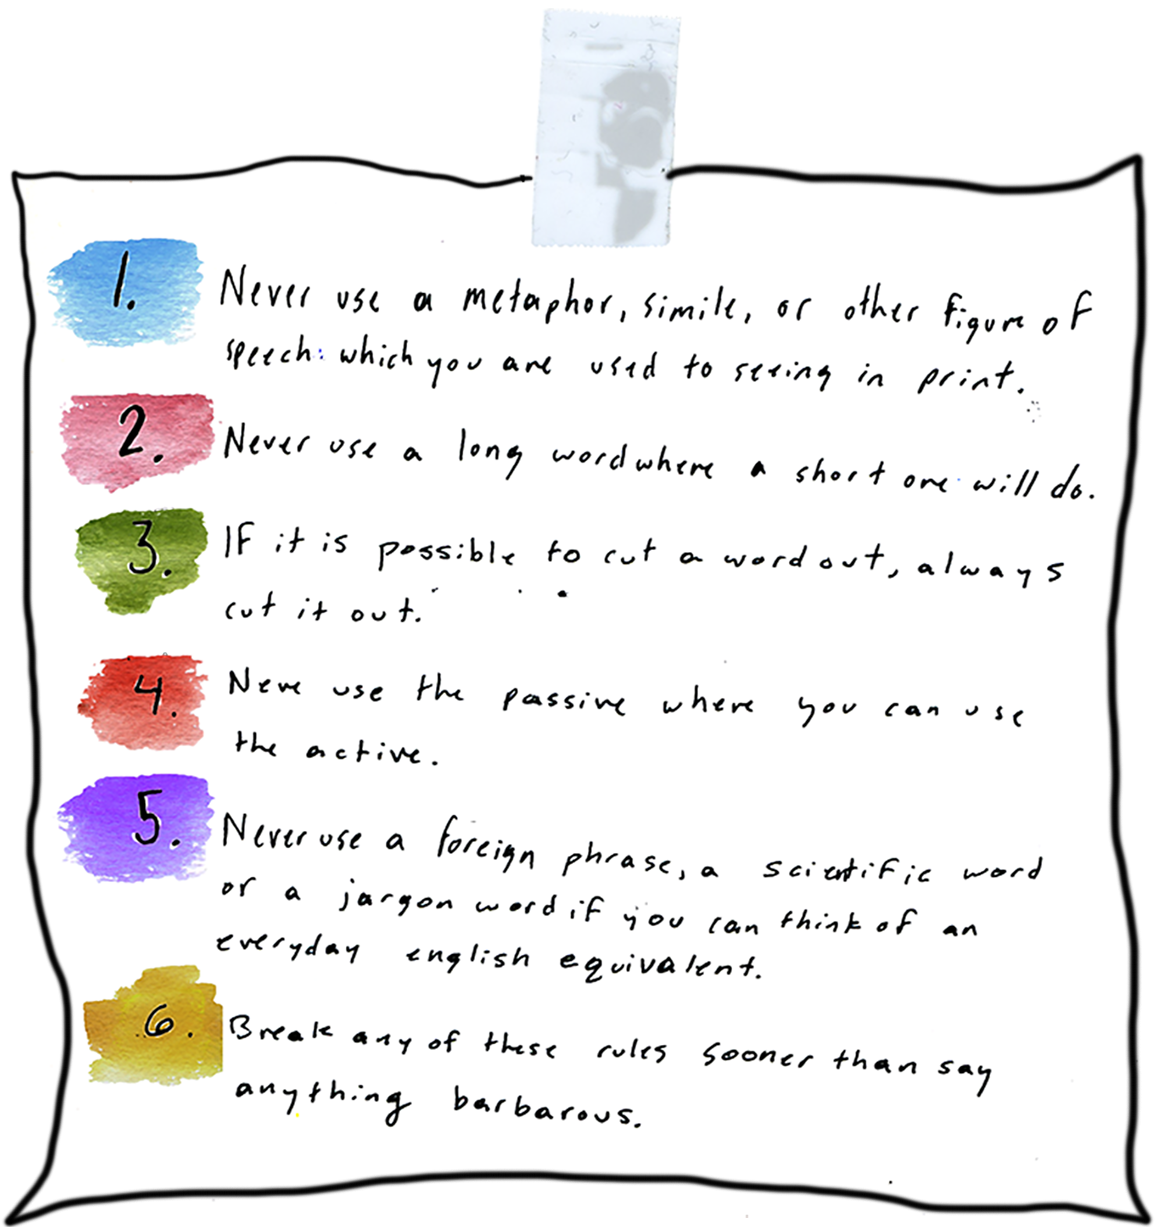 1. Never use a metaphor, simile, or other figure of
speech: which you are used to seeing in print.
2. Never use a long word where a short one will do.
3. If it is possible to cut a word out, always
cut it out.
4. Neve use the passive where you can use
the active.
5. Never use a foreign phrase, a scientific word
or a jargon word if you can think of an
everyday english equivalent.
6. Break any of these rules sooner than say
anything barbarous.